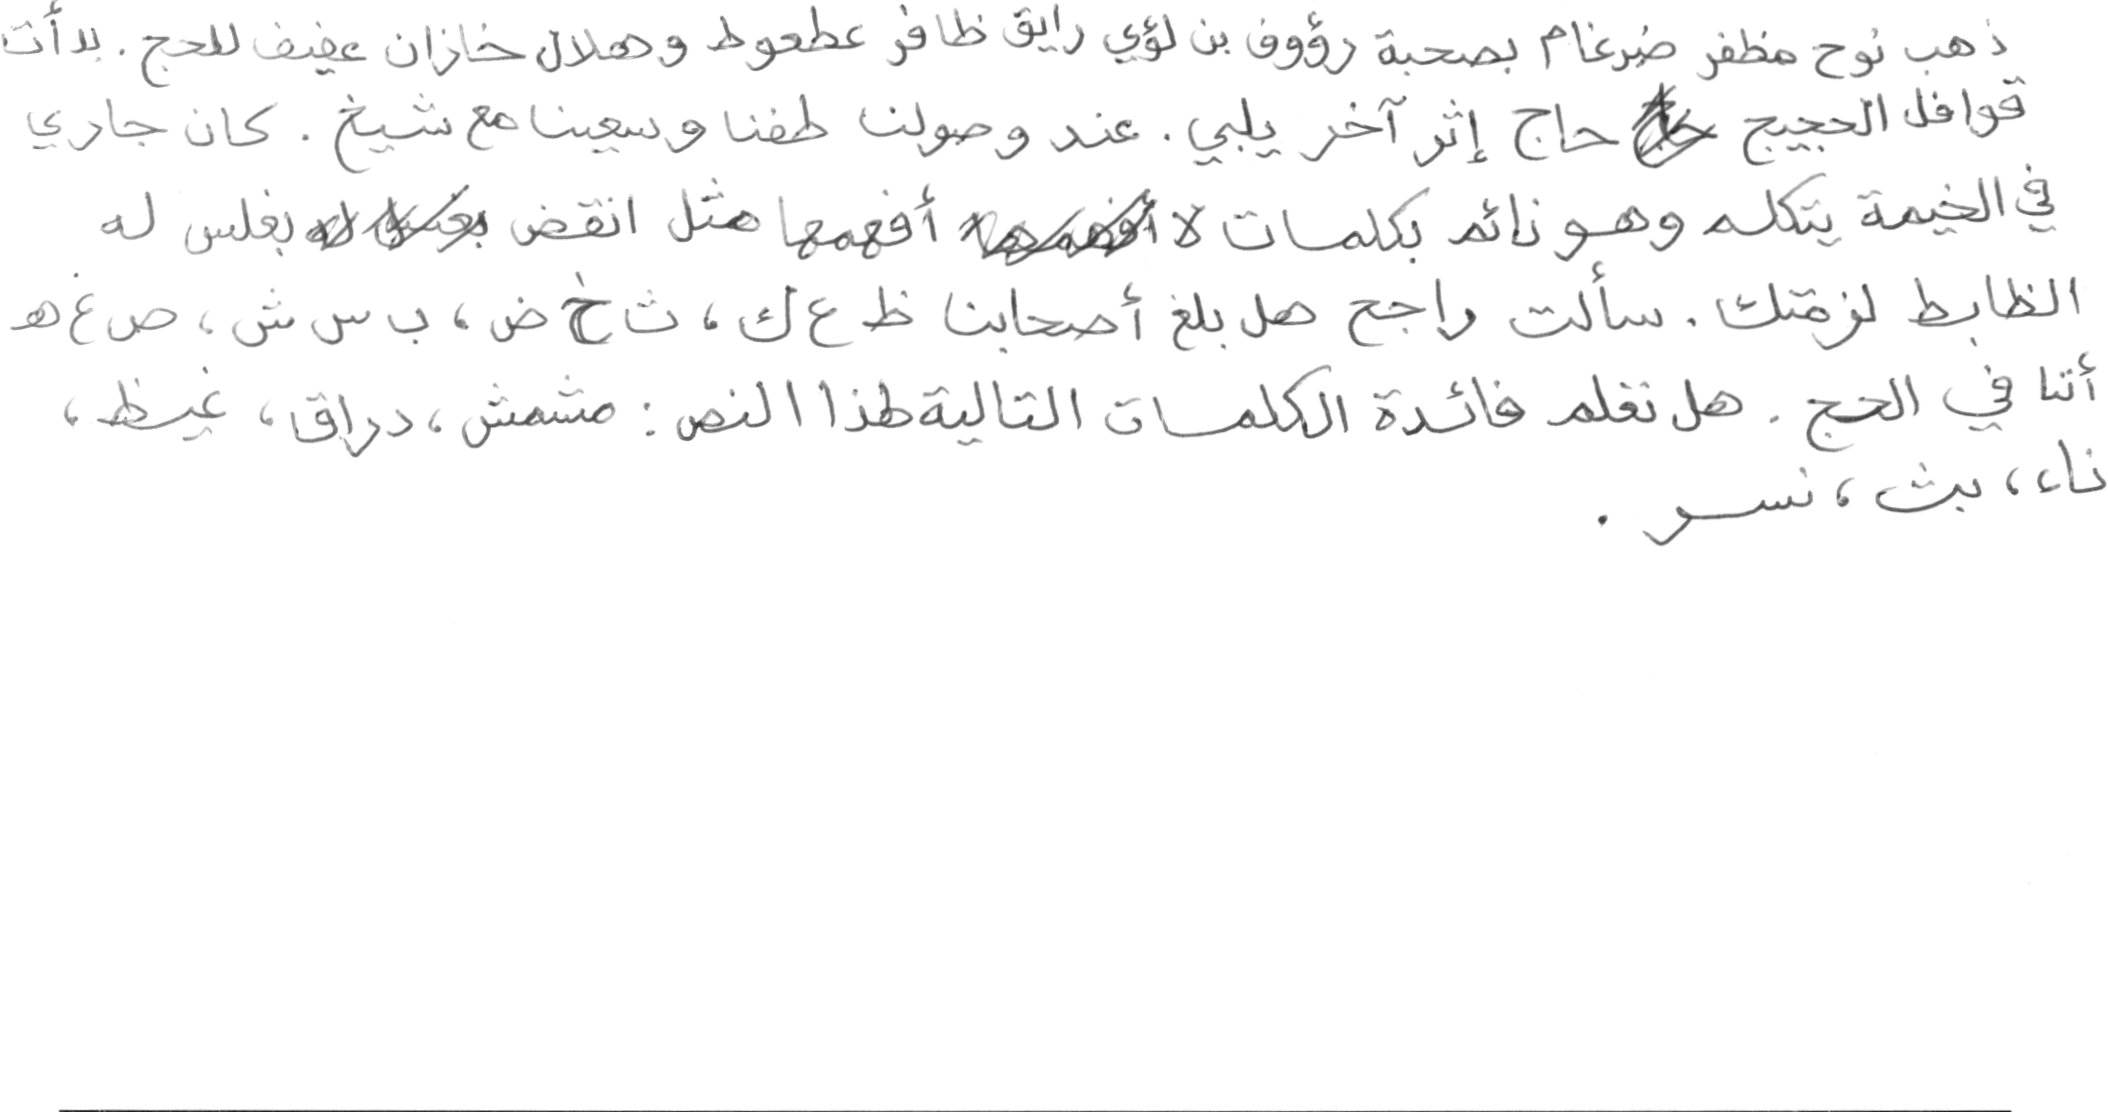 ذهب نوح مظفر ضرغام بصحبة رؤوف بن لؤي رايق ظافر عطعوط وهلال خازان عفيف للحج. بدأت
قوافل الحجيج حاج إثر آخر يلبي. عند وصولنا طفنا وسعينا مع شيخ. كان جاري
في الخيمة يتكلم وهو نائم بكلمات لا أفهمها مثل انقض بغلس له
الظابط لزمتك. سألت راجح هل بلغ أصحابنا ظ ع ك، ث خ ض، ب س ش، ص غ هـ
أننا في الحج. هل تعلم فائدة الكلمات التالية لهذا النص: مشمش، دراق، غيظ،
ناء، بث، نسر.